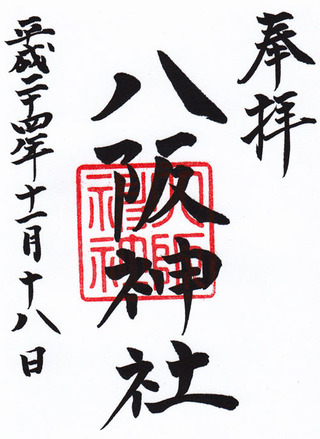 奉拝
八阪神社
八阪神社
平成二十四年十一月十八日